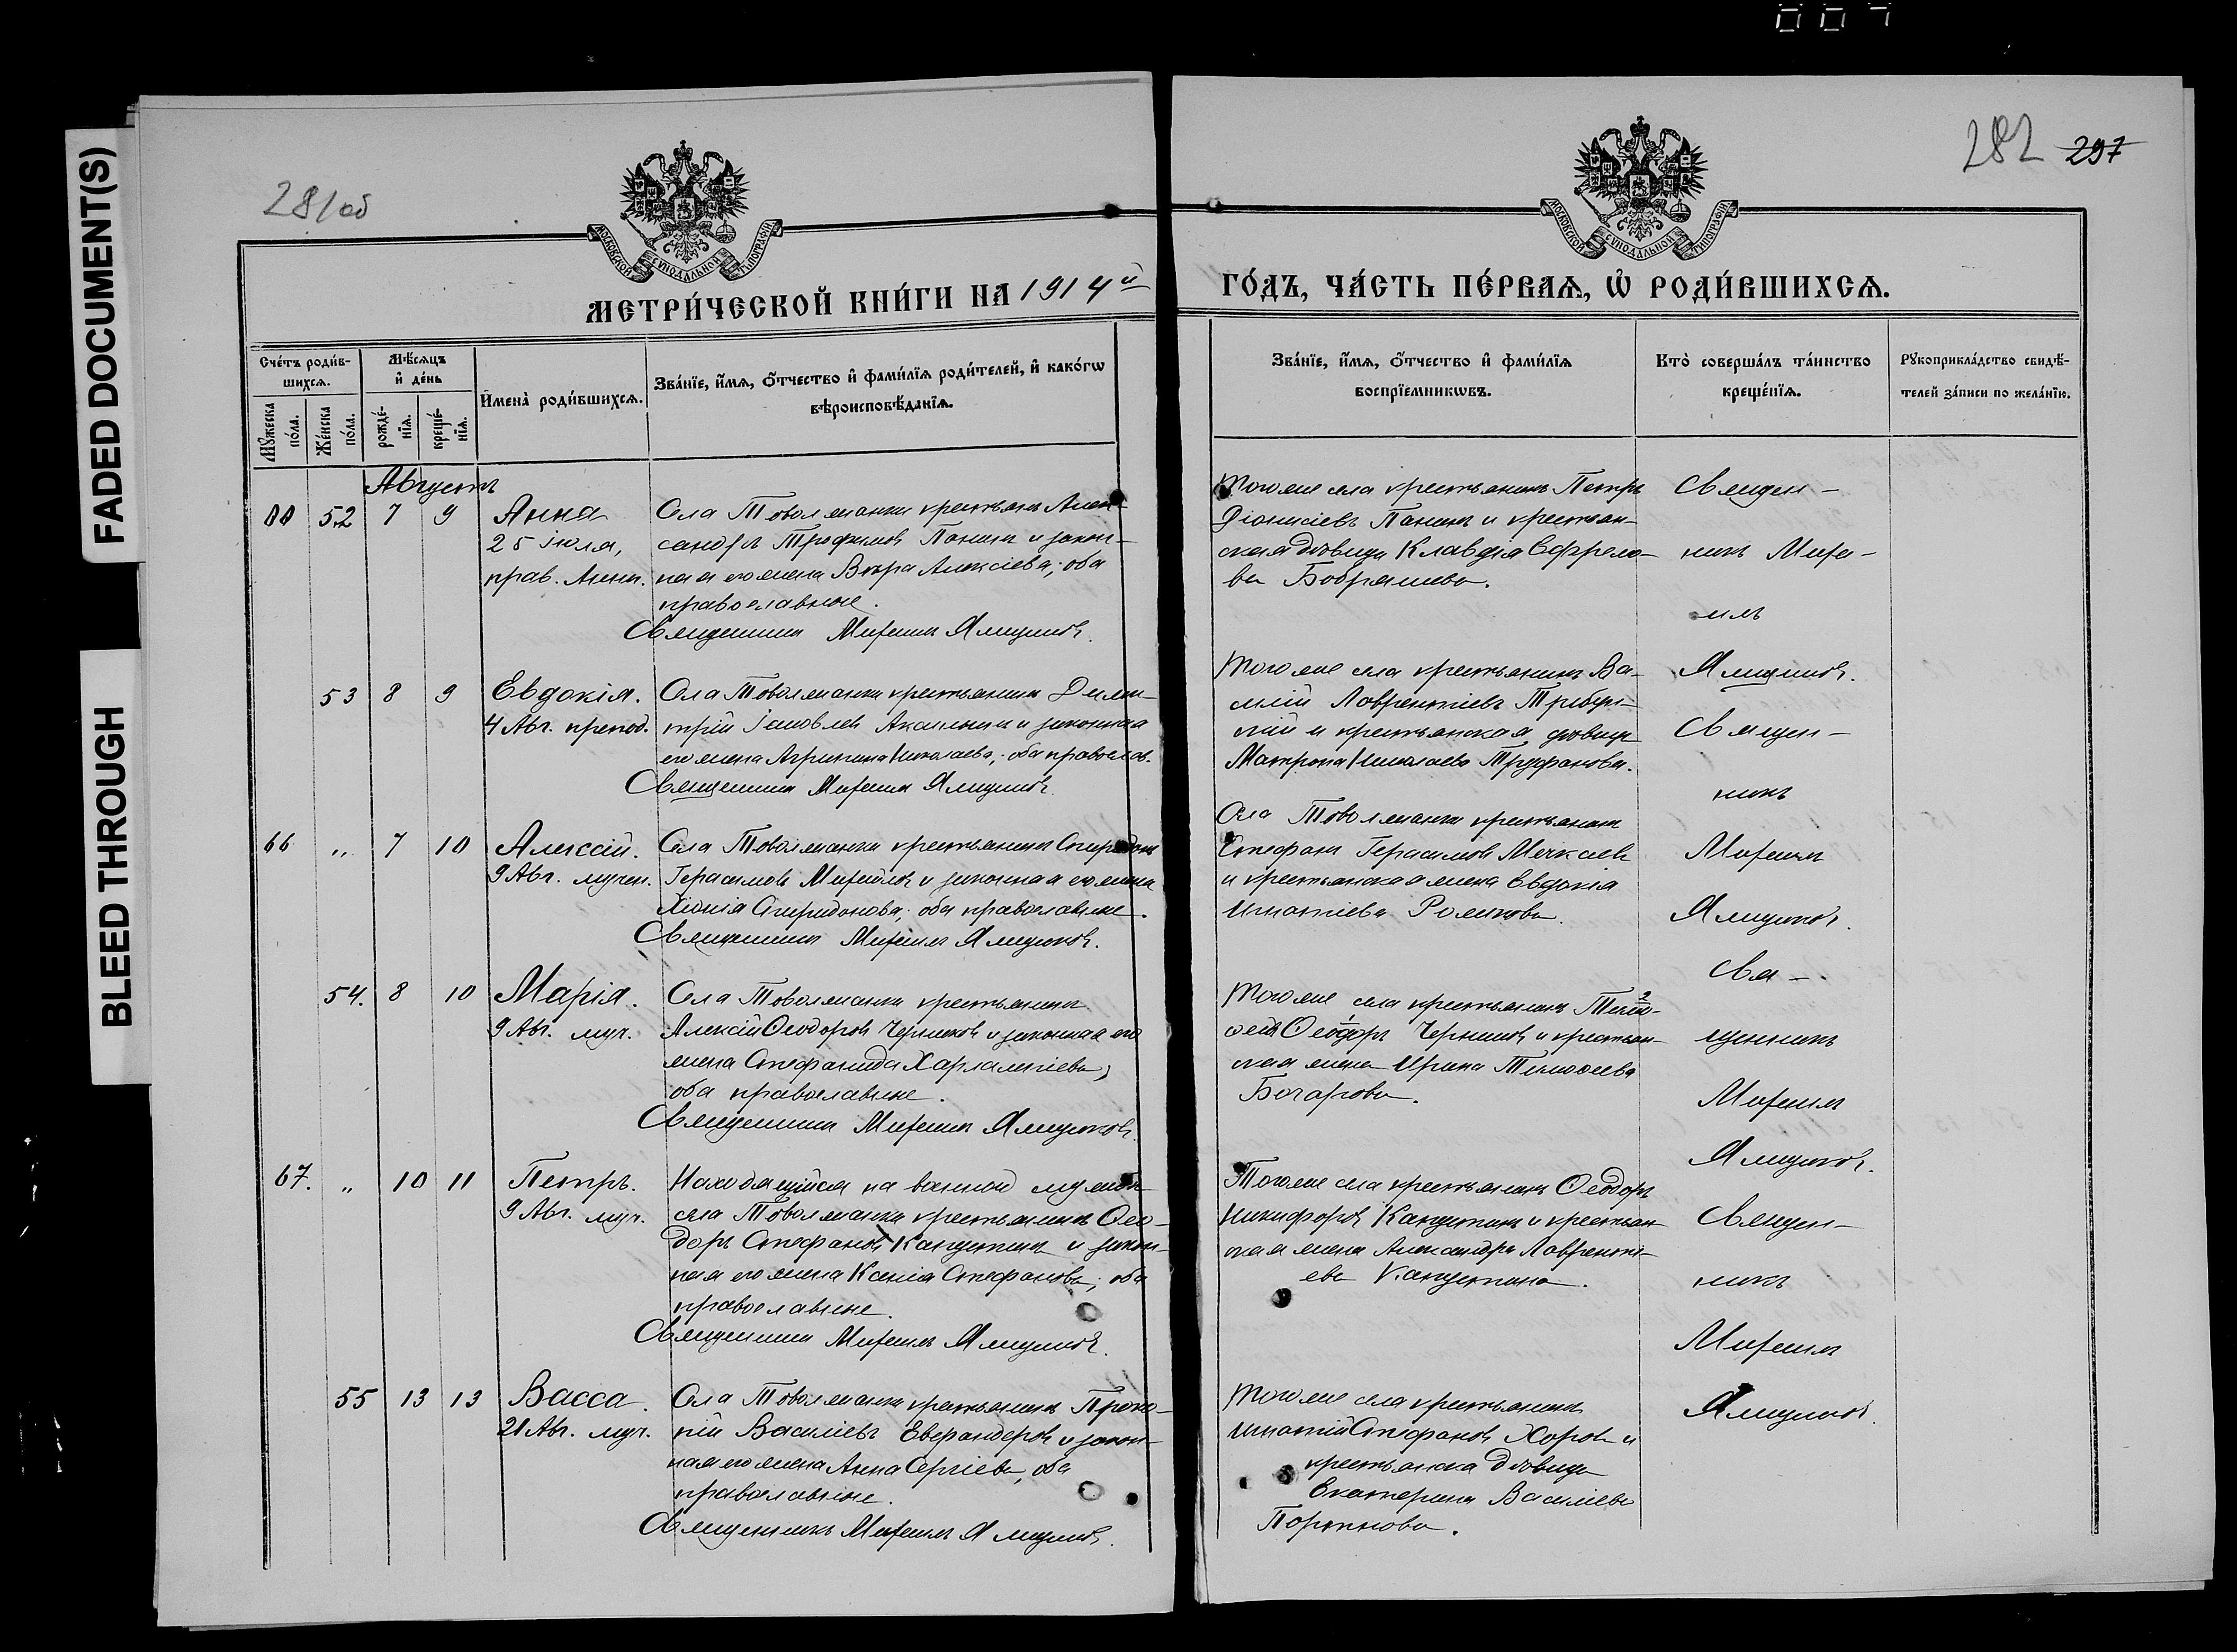 007
FADED DOCUMENT(S)
BLEED THROUGH
281об
282 297
МОСКОВСКОЙ СѴНОДАЛЬНОЙ ТИПОГРАФІИ
МОСКОВСКОЙ СѴНОДАЛЬНОЙ ТИПОГРАФІИ
МЕТРИ́ЧЕСКОЙ КНИ́ГИ НА 1914й
ГО́ДЪ, ЧА́СТЬ ПЕ́РВАѦ, Ѡ҆ РОДИ́ВШИХСѦ.
Сче́тъ роди́в-
шихсѧ.
Мꙋ́жеска
по́ла.
Же́нска
по́ла.
Мѣ́сѧцъ
и҆ де́нь
рожде́-
нїѧ.
креще́-
нїѧ.
И҆мена̀ роди́вшихсѧ.
Зва́нїе, и҆́мѧ, ѻ҆́тчество и҆ фами́лїѧ роди́телей, и҆ како́гѡ
вѣроисповѣ́данїѧ.
Зва́нїе, и҆́мѧ, ѻ҆́тчество и҆ фами́лїѧ
воспрїе́мникѡвъ.
Кто̀ соверша́лъ та́инство
креще́нїѧ.
Рꙋкоприкла́дство свидѣ́-
телей за́писи по жела́нїю.
Августъ
52 7 9 Анна
25 іюля,
прав. Анны.
Села Товолжанки крестьянинъ Алек-
сандръ Трофимовъ Панинъ и закон-
ная его жена Вѣра Алексіева; оба
православные.
Священникъ Михаилъ Ямщиковъ.
Того же села крестьянинъ Петръ
Діонисіевъ Панинъ и крестьян-
ская дѣвица Клавдія Ефремо-
ва Бобряшева.
Священ-
никъ Миха-
илъ
Ямщиковъ.
53 8 9 Евдокія.
4 Авг. препод.
Села Товолжанки крестьянинъ Дими-
трій Іаковлевъ Акапьинъ и законная
его жена Агрипина Николаева; оба правосл.
Священникъ Михаилъ Ямщиковъ
Того же села крестьянинъ Ва-
силій Лаврентіевъ
и крестьянская дѣвица
Матрона Николаева Труфанова.
Священ-
никъ
Михаилъ
Ямщиковъ.
66 „ 7 10 Алексій.
9 Авг. мучен.
Села Товолжанки крестьянинъ Спиридонъ
Герасимовъ Михайловъ и законная его жена
Хіонія Спиридонова; оба православные.
Священникъ Михаилъ Ямщиковъ.
Села Товолжанки крестьянинъ
Стефанъ Герасимовъ
и крестьянская жена Евдокія
Игнатіева
54. 8 10 Марія.
9 Авг. муч.
Села Товолжанки крестьянинъ
Алексій Ѳеодоровъ Черниковъ и законная его
жена Стефанида Харлампіева;
оба православные.
Священникъ Михаилъ Ямщиковъ.
Того же села крестьянинъ Тимо-
ѳей Ѳеодоръ Черниковъ и крестьян-
ская жена Ирина Тимоѳеева
Бочарова.
Свя-
щенникъ
Михаилъ
Ямщиковъ.
67. „ 10 11 Петръ.
9 Авг. муч.
Находящійся на военной службѣ
села Товолжанки крестьянинъ Ѳео-
доръ Стефановъ Капустинъ и закон-
ная его жена Ксенія Стефанова; оба
православные.
Священникъ Михаилъ Ямщиковъ.
Того же села крестьянинъ Ѳеодоръ
Никифоровъ Капустинъ и крестьян-
ская жена Александра Лавренті-
ева Капустина.
Священ-
никъ
Михаилъ
Ямщиковъ.
55 13 13 Васса.
21 Авг. муч.
Села Товолжанки крестьянинъ Проко-
пій Василіевъ и закон-
ная его жена Анна Сергіева; оба
православные.
Священникъ Михаилъ Ямщиковъ.
Того же села крестьянинъ
Игнатій Стефановъ и
крестьянска дѣвица
Екатерина Василіева